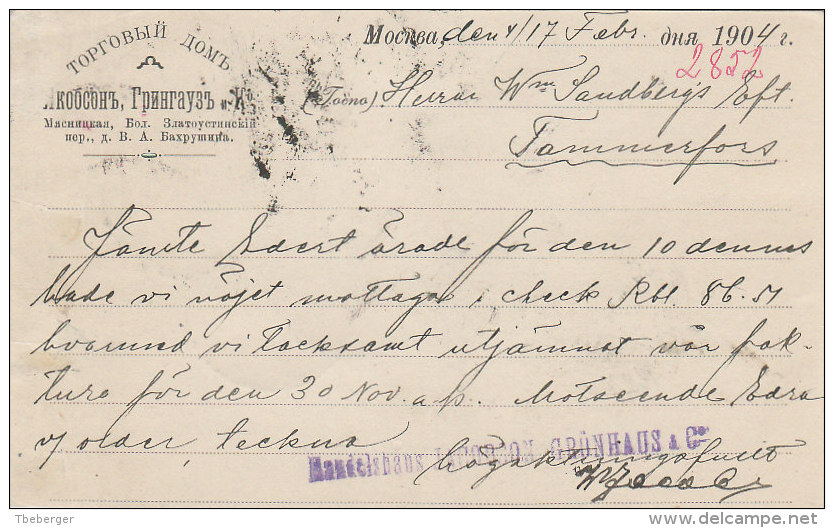 ТОРГОВЫЙ ДОМЪ
Якобсонъ, Грингаузъ и Ко
Мясницкая, Бол. Златоустинскій
пер., д. В. А. Бахрушина.
Москва, den 4/17 Febr. дня 1904 г.
2852
Herrar Wm Sandbergs Eft.
Tammerfors
Jämte Edert ärade för den 10 dennes
hade vi nöjet mottaga i check Rbl. 86.51
hvarmed vi tacksamt utjämnat vår fak-
tura för den 30 Nov. a.p. Motseende Edra
order, teckna
högaktningsfullt
Handelshaus JACOBSON, GRÜNHAUS & Co
Theberger
delcampe.net